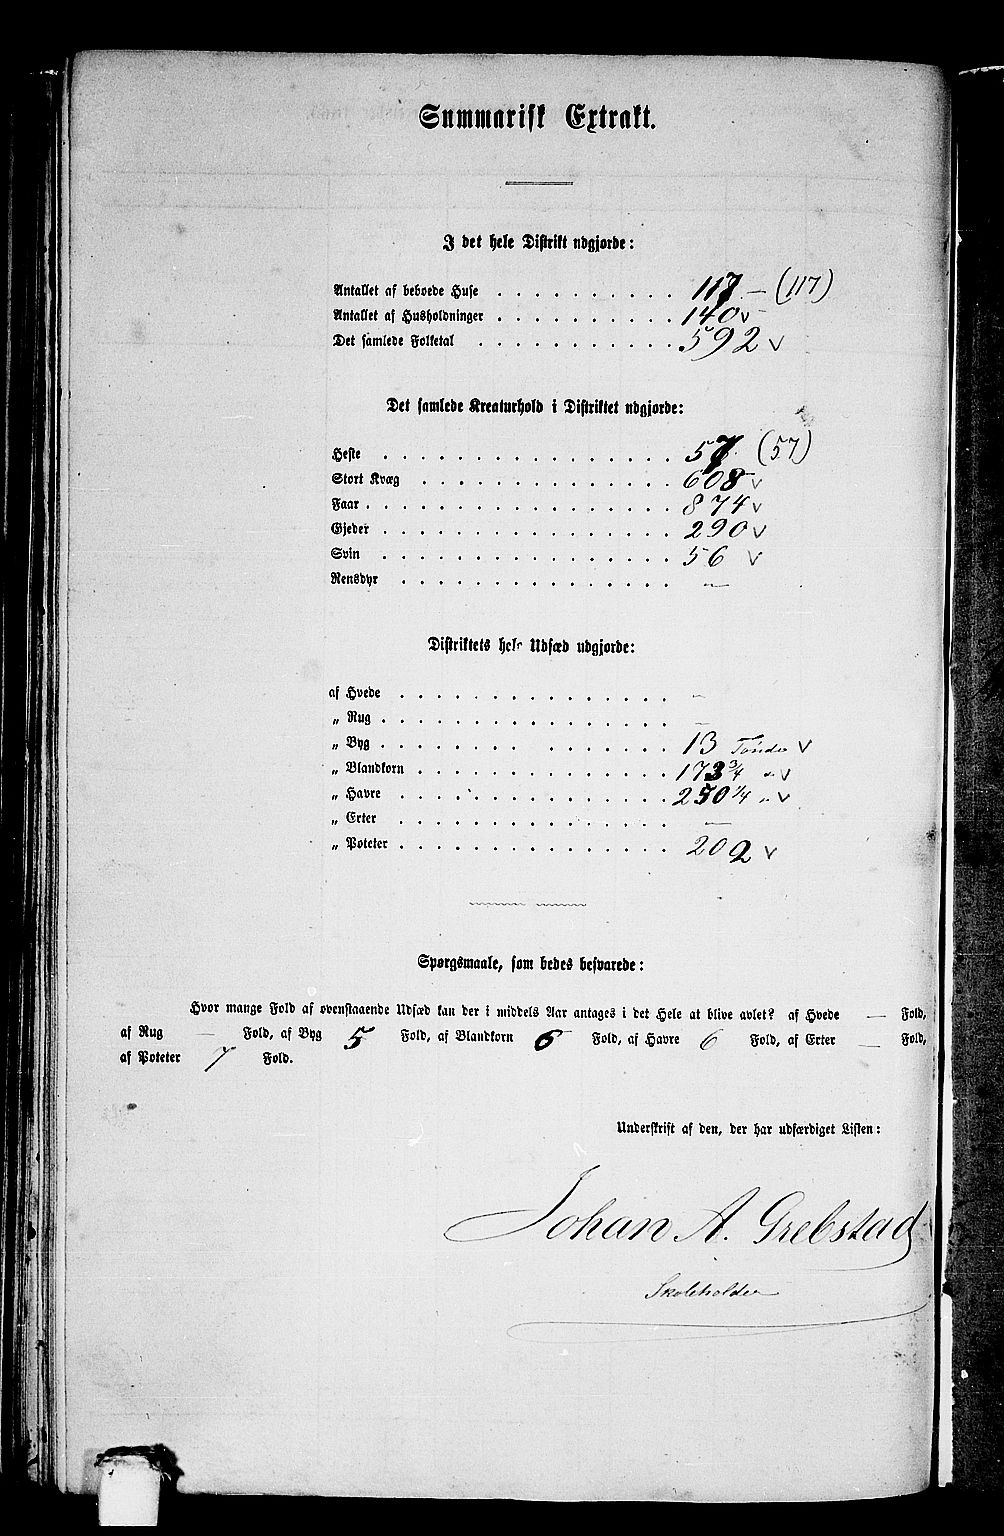 Summarisk Extrakt.
I det hele Distrikt udgjorde:
Antallet af beboede Huse . . . . . . . . . . 117 — (117)
Antallet af Husholdninger . . . . . . . . . . 140 v
Det samlede Folketal . . . . . . . . . . . 592 v
Det samlede Kreaturhold i Distriktet udgjorde:
Heste . . . . . . . . . . . . . . . . 57 (57)
Stort Kvæg . . . . . . . . . . . . . . 608 v
Faar . . . . . . . . . . . . . . . . . 874 v
Gjeder . . . . . . . . . . . . . . . . 290 v
Svin . . . . . . . . . . . . . . . . 56 v
Rensdyr . . . . . . . . . . . . . . . —
Distriktets hele Udsæd udgjorde:
af Hvede . . . . . . . . . . . . . . —
„ Rug . . . . . . . . . . . . . . . —
„ Byg . . . . . . . . . . . . . . 13 Tønder v
„ Blandkorn . . . . . . . . . . . . . 173 3/4 " v
„ Havre . . . . . . . . . . . . . . 250 1/4 " v
„ Erter . . . . . . . . . . . . . . —
„ Poteter . . . . . . . . . . . . . . 202 v
Spørgsmaale, som bedes besvarede:
Hvor mange Fold af ovenstaaende Udsæd kan der i middels Aar antages i det Hele at blive avlet? af Hvede — Fold,
af Rug — Fold, af Byg 5 Fold, af Blandkorn 6 Fold, af Havre 6 Fold, af Erter — Fold,
af Poteter 7 Fold.
Underskrift af den, der har udfærdiget Listen:
Johan A. Grebstad
Skoleholder